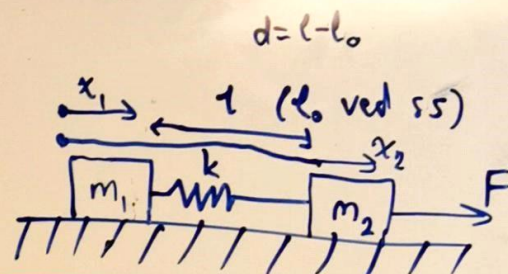 d=l-l₀
x₁ l (l₀ ved ss)
x₂
k
m₁ m₂ F